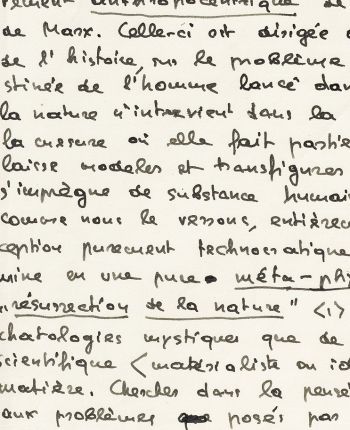 rement anthropocentrique de
de Marx. Celle-ci est dirigée
de l'histoire, sur le problème
stinée de l'homme lancé dan
la nature n'intervient dans la
la mesure où elle fait partie
laisse modeler et transfigurer
s'imprègne de substance humai
comme nous le verrons, entièrem
ception purement technocratique
mine en une pure méta-phy
"résurrection de la nature" <1>
chatologies mystiques que de
scientifique <matérialiste ou id
matière. Chercher dans la pensé
aux problèmes posés par